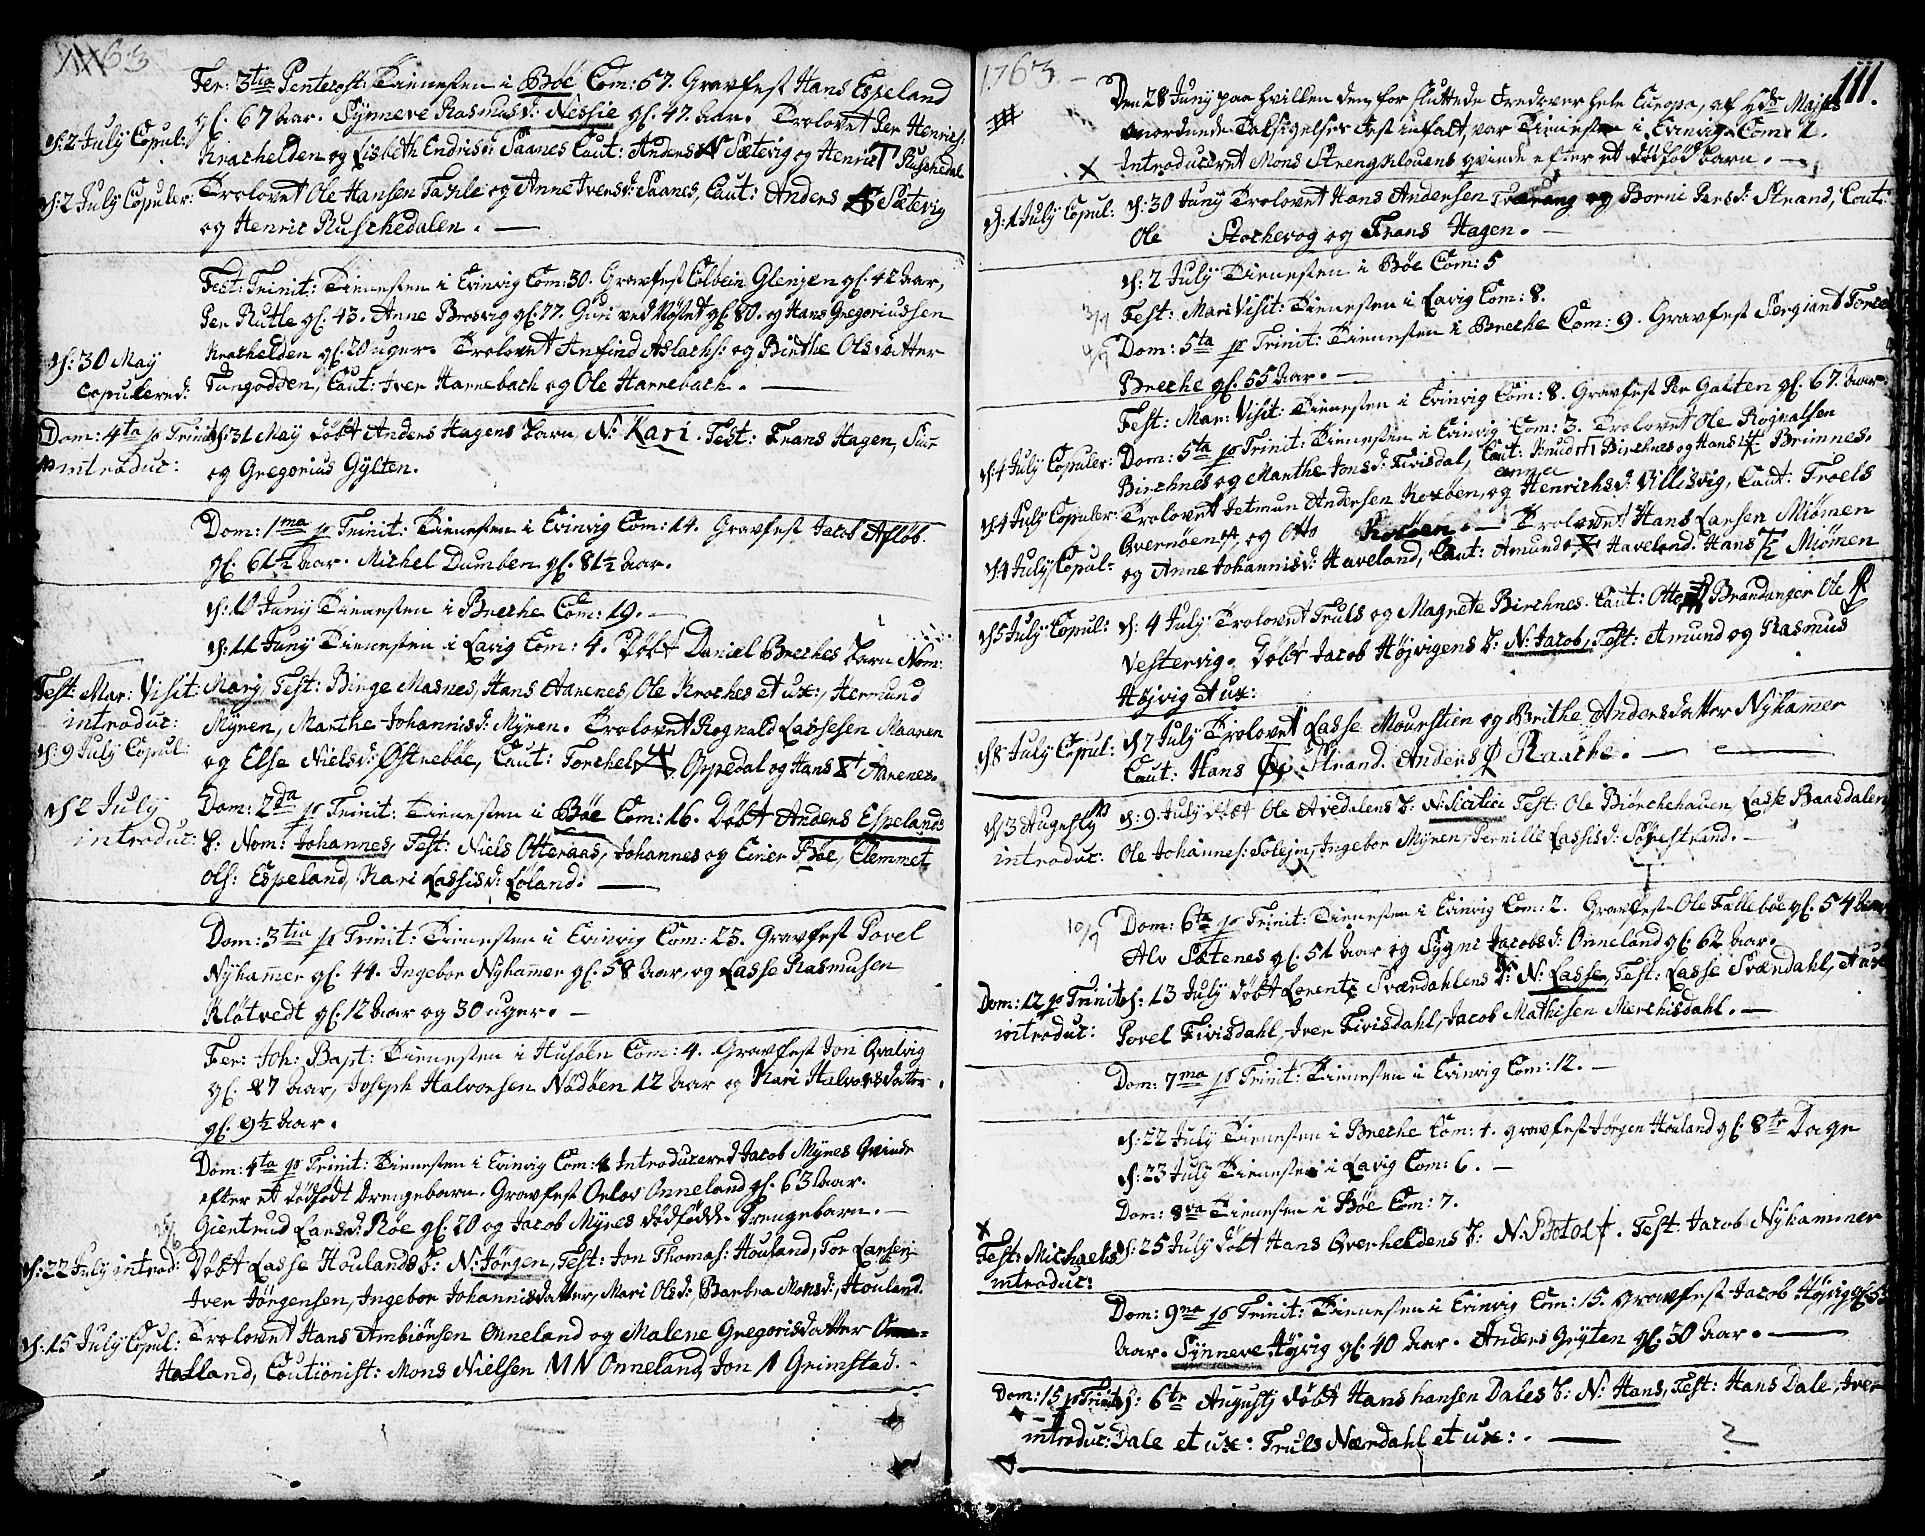 1763
Fer: 3tia Pentecost: Tienesten i Böe Com: 67. Gravfest Hans Espeland
gl. 67 Aar. Synneve Rasmusd: Nessie gl. 47. Aar. Trolovet Per Henrichs:
d: 2 July Copul: Krachelden og Lisbeth Endrisd: Saanes Caut: Anders Sætevig og Henric Ruschedal
d: 2 July Copuler: Trolovet Ole Hansen Takle og Anne Iversd: Saanes, Caut: Anders Sætevig
og Henric Ruschedalen.
Fest: Trinit: Tienesten i Evinvig Com: 30. Gravfest Colbein Glenjen gl. 42 Aar,
Per Rutle gl. 43. Anne Brosvig gl. 77. Guri ved Nöstet gl. 80. og Hans Gregoriussen
Krachelden gl. 20 uger. Trolovet Anfind Aslachs: og Birthe Olsdatter
d: 30 May
copulered: Tungodden, Caut: Iver Harnebach og Ole Harnebach.
Dom: 4ta p Trinit: d: 31 May döbt Anders Hagens barn, N: Kari. Test: Frans Hagen, Siur
introduc: og Gregorius Gylten.
Dom: 1ma p Trinit: Tienesten i Evinvig Com: 14. Gravfest Jacob Aflöb.
gl. 61½ Aar. Michel Dumben gl. 81½ Aar.
d: 10 Juny Tienesten i Breche Com: 19.
d: 11 Juny Tienesten i Lavig Com: 4. Döbt Daniel Breches barn Nom:
Fest: Mar: Visit: Marj, Test: Binge Masnes, Hans Aarenes, Ole Kroches et ux:, Hermund
introduc: Myren, Marthe Johannisd: Myren. Trolovet Rognald Lassesen Maaren
d: 9 July Copul: og Else Nielsd: Östreböe, Caut: Torchel Oppedal og Hans Aarenes.
d 2 July Dom: 2da p Trinit: Tienesten i Böe Com: 16. Döbt Anders Espelands
introduc: b: Nom: Johannes, Test: Niels Otteraas, Johannes og Einer Böe, Clemmet
Ols: Espeland, Kari Lassisd: Löland.
Dom: 3tia p Trinit: Tienesten i Evinvig Com: 23. Gravfest Povel
Nyhamer gl. 44. Ingebor Nyhamer gl. 58 Aar, og Lasse Rasmusen
Klötvedt gl. 12 Aar og 30 uger.
Fer: Joh: Bapt: Tienesten i Husöen Com: 4. Gravfest Jon Qvalvig
gl. 87 Aar, Joseph Halvorsen Nödöen 12 Aar og Kari Halvorsdatter
gl. 9½ Aar.
Dom: 4ta p Trinit: Tienesten i Evinvig Com: 4 Introduceret Jacob Mynes Qvinde
efter et dödfödt drengebarn. Gravfest Onlov Onneland gl. 63 Aar.
Giertrud Larsd: Röe gl. 70 og Jacob Mynes dödfödde Drengebarn.
d: 22 July introd: Döbt Lasse Houlands b: N: Jörgen, Test: Jon Thomas: Houland, Tor Larsen
Iver Jörgensen, Ingebor Johannisdatter, Mari Olsd:, Barbra Monsd:, Houland.
d: 15 July Copul: Trolovet Hans Ambiönsen Onneland og Malene Gregorisdatter
Halland, Coutiönist: Mons Nielsen MN Onneland, Jon Grimstad.
1763 111.
Den 28 Juny paa hvilken den for sluttede Fred over hele Europa, af Hds Majts
anordnede Taksigelses Fest infalt, var Tienesten i Evinvig Com: 2.
Introduceret Mons Strengklouens qvinde efter et dödföd barn.
d. 1 July Copul: d: 30 Juny Trolovet Hans Andersen og Borni Persd: Strand, Caut:
Ole Stochevog og Frans Hagen.
d: 2 July Tienesten i Böe Com: 5
3/7 Fest: Mari Visit: Tienesten i Lavig Com: 8.
4/7 Dom: 5ta p Trinit: Tienesten i Breche Com: 9. Gravfest Sergiant Torcel
Breche gl. 55 Aar.
Fest: Mar: Visit: Tienesten i Evinvig Com: 8. Gravfest Per Galten gl. 67. Aar.
Dom: 5ta p Trinit: Tienesten i Evinvig Com: 3. Trolovet Ole Rognalsen
d: 4 July Copuler: Birchnes og Marthe Jonsd: Fivisdal, Caut: Knud Birchnes og Hans Brimnes.
d: 4 July Copuler: Trolovet Jetmun Andersen Koxöen, og anna Henrichsd: Villisvig, Caut: Troels
Qvernöen og Otto Koxöen. Trolovet Hans Larsen Miömen
d: 4 July Copul: og Anne Johannisd: Haveland, Caut: Amund Haveland. Hans Miömen
d 5 July Copul: d: 4 July Trolovet Truls og Magrete Birchnes. Caut: Otto Brandanger Ole
Vestervig. Döbt Jacob Höjvigens b: N: Jacob, Test: Amund og Rasmus
Höjvig et ux:
d 8 July Copul: d 7 July Trolovet Lasse Mourstien og Brithe Andersdatter Nyhamer
Caut: Hans Strand. Anders Raache.
d: 3 Augusty d: 9. July döbt Ole Avedalens b: N: Sicilici Test: Ole Biörchehauen, Lasse Baardalen
introduc: Ole Johannes: Solejm, Ingebor Myren, Pernille Lassisd: Sörestrand.
10/7 Dom: 6ta p Trinit: Tienesten i Evinvig Com: 2. Gravfest Ole Falleböe gl. 54 Aar
Alv Sætenes gl. 51 Aar og Sygni Jacobsd: Onneland gl. 62 Aar.
Dom: 12 p Trinit: d: 13 July döbt Lorentz Svændahlens b: N: Lasse, Test: Lasse Svændahl,
introduc: Povel Fivisdahl, Iver Fivisdahl, Jacob Mathisen Merchisdahl.
Dom: 7ma p Trinit: Tienesten i Evinvig Com: 12.
d: 22 July Tienesten i Breche Com: 1. gravfest Jörgen Houland gl. 8te Dage
d: 23 July Tienesten i Lavig Com: 6.
Dom: 8va Tienesten i Böe Com: 7.
Fest: Michaelis d: 25 July döbt Hans Qverheldens b: N: Botolf. Test: Jacob Nyhammer
introduc:
Dom: 9na p Trinit: Tienesten i Evinvig Com: 15. Gravfest Jacob Höjvig gl. 53
Aar. Synneve Höjvig gl. 40 Aar. Anders Grÿten gl. 30 Aar.
Dom: 15 p Trinit: d: 6te Augustj döbt Hans hansen Dales b: N: Hans, Test: Hans Dale, Iver
introduc: Dale et ux: Truls Nærdahl et ux:.